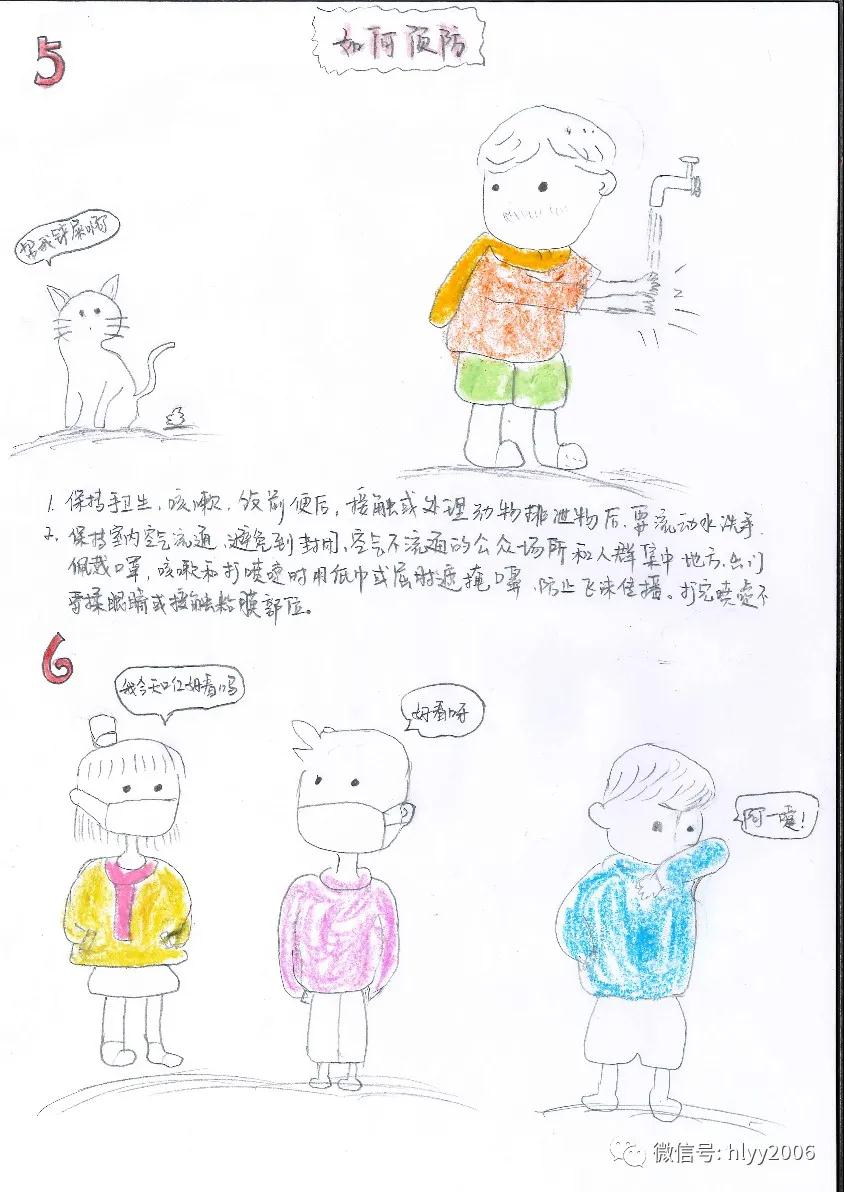 5
如何预防
帮我铲屎啊
1. 保持手卫生,咳嗽、饭前便后,接触或处理动物排泄物后,要流动水洗手.
2. 保持室内空气流通,避免到封闭、空气不流通的公众场所和人群集中地方,出门
佩戴口罩,咳嗽和打喷嚏时用纸巾或屈肘遮掩口鼻,防止飞沫传播。打完喷嚏不
要揉眼睛或接触粘膜部位。
6
我今天口红好看吗
好看呀
阿一嚏!
微信号: hlyy2006